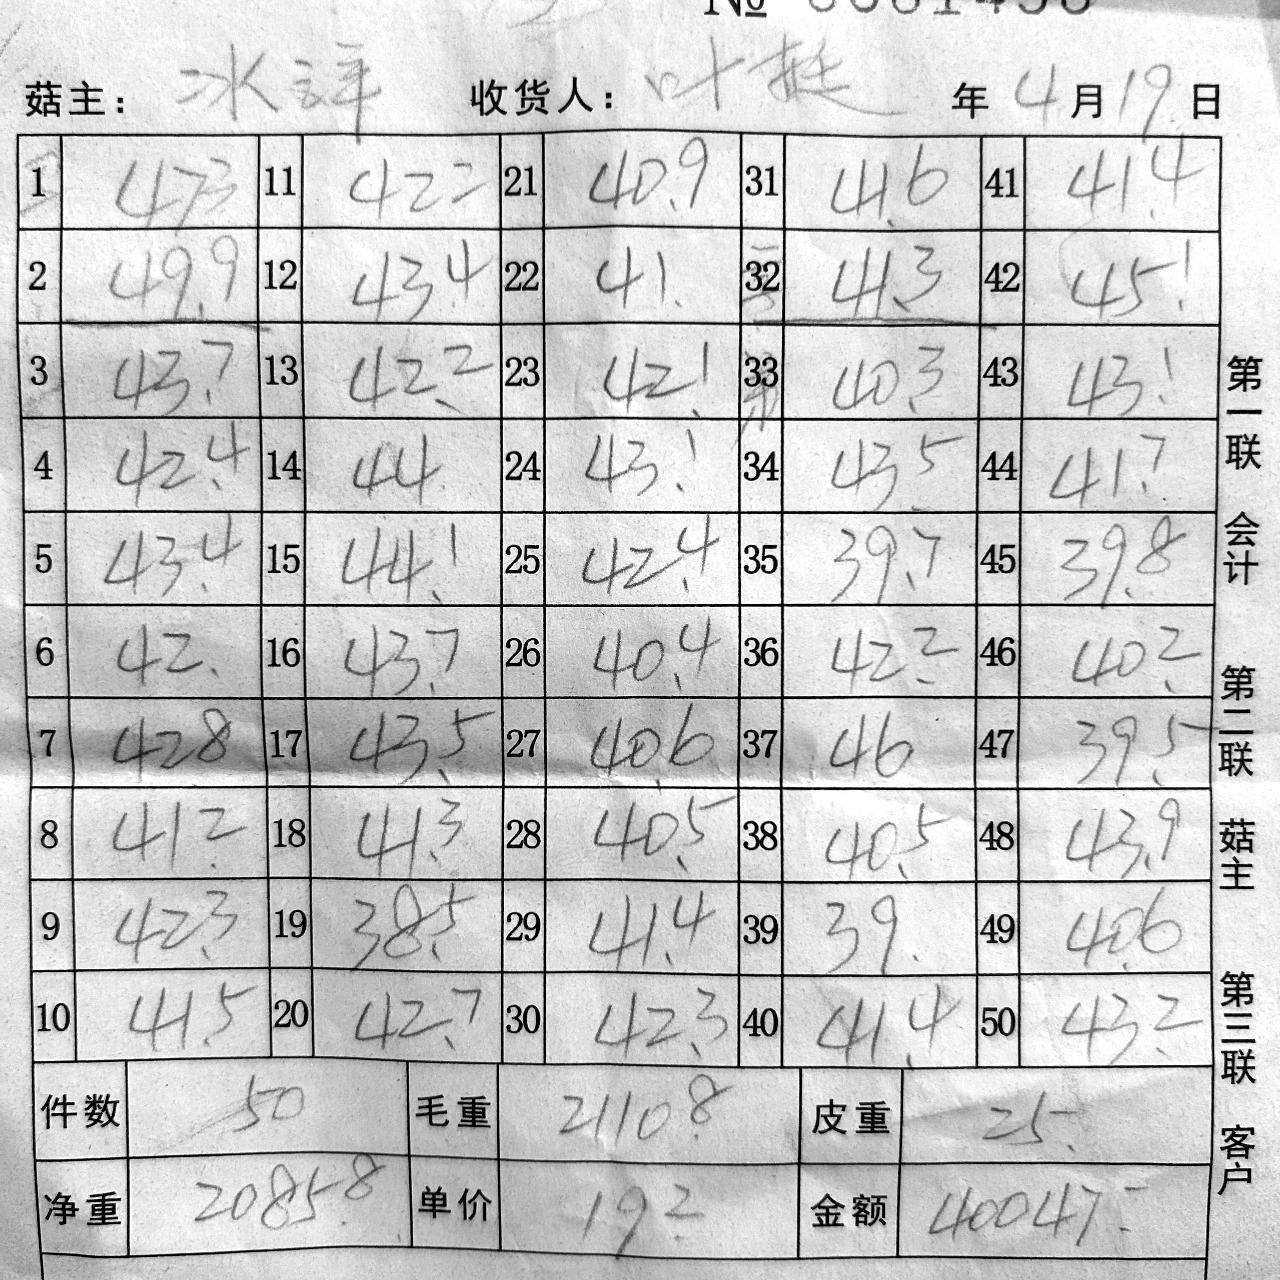 菇主： 冰譁 收货人： 叶挺 年 4 月 19 日
1 47.3 11 42.2 21 40.9 31 41.6 41 41.4
2 49.9 12 43.4 22 41. 32 41.3 42 45.1
3 43.7 13 42.2 23 42.1 33 40.3 43 43.1
4 42.4 14 44 24 43.1 34 43.5 44 41.7
5 43.4 15 44.1 25 42.4 35 39.7 45 39.8
6 42. 16 43.7 26 40.4 36 42.2 46 40.2
7 42.8 17 43.5 27 40.6 37 46 47 39.5
8 41.2 18 41.3 28 40.5 38 40.5 48 43.9
9 42.3 19 38.5 29 41.4 39 39. 49 40.6
10 41.5 20 42.7 30 42.3 40 41.4 50 43.2
件数 50 毛重 2110.8 皮重 25.
净重 2085.8 单价 19.2 金额 40047.-
第一联 会计 第二联 菇主 第三联 客户